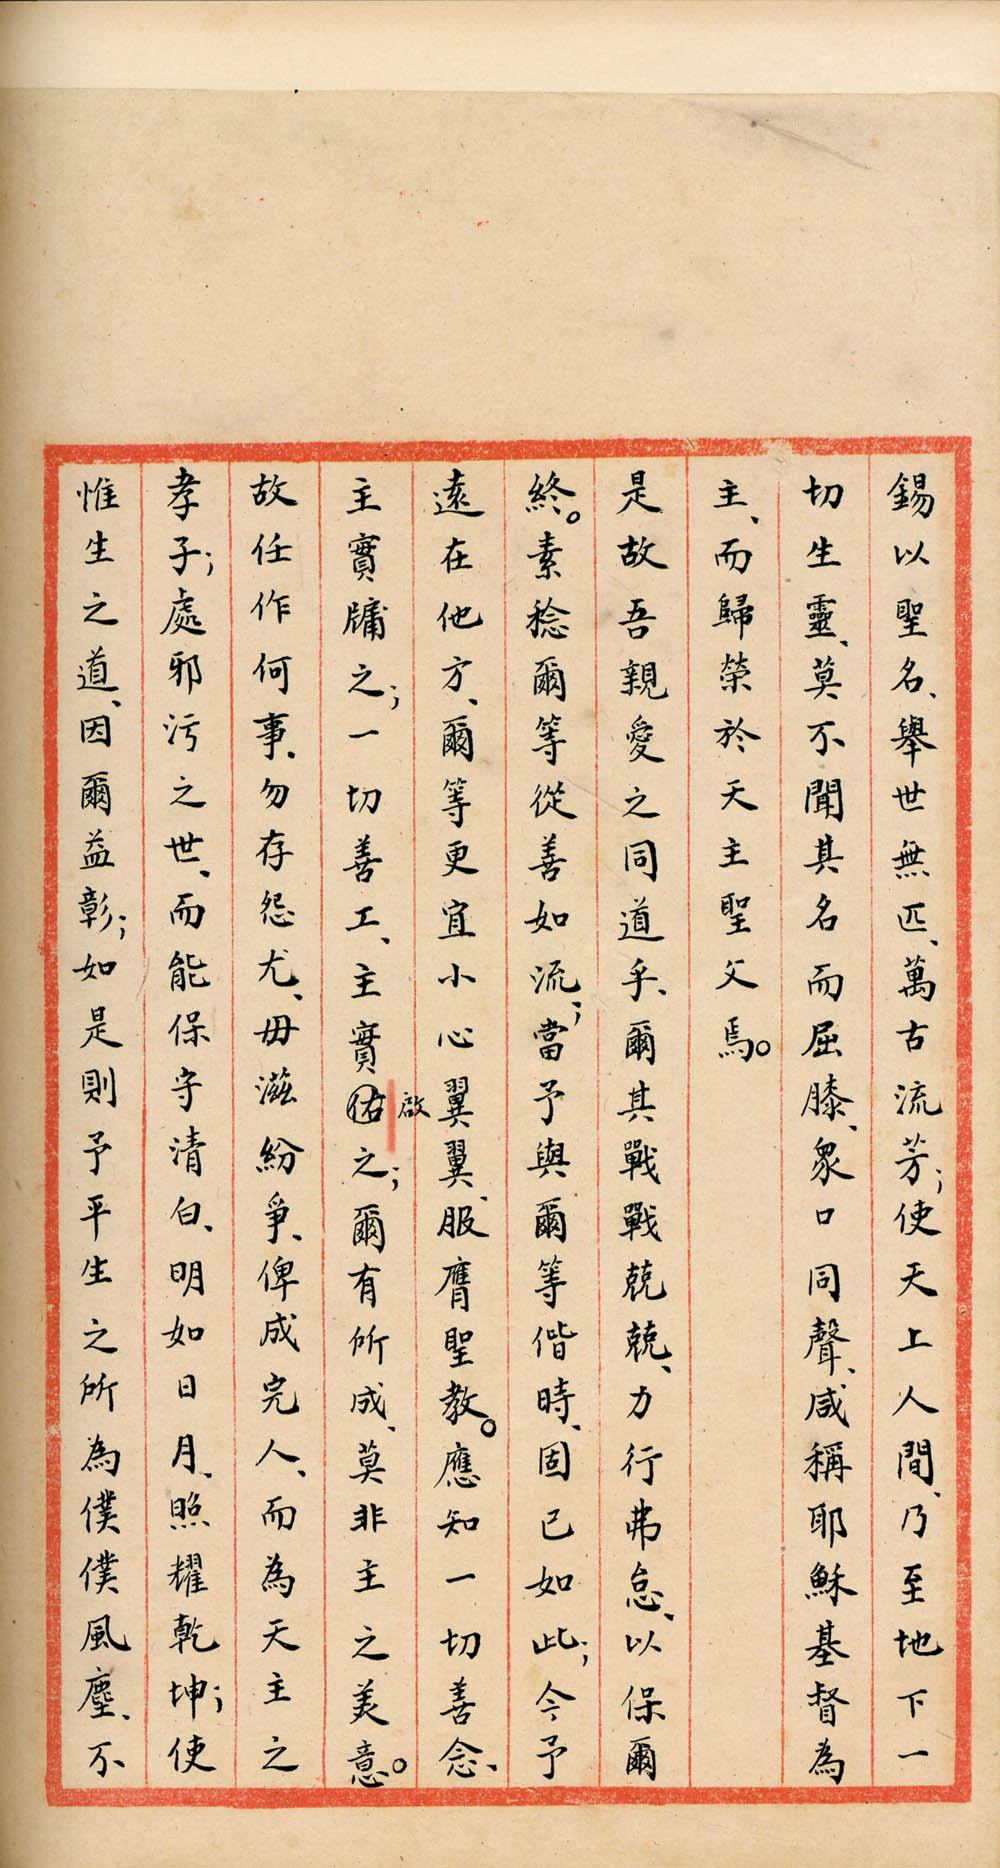 錫以聖名、舉世無匹、萬古流芳；使天上人間、乃至地下一
切生靈、莫不聞其名而屈膝、眾口同聲、咸稱耶穌基督為
主、而歸榮於天主聖父焉。
是故吾親愛之同道乎、爾其戰戰兢兢、力行弗怠、以保爾
終。素稔爾等從善如流；當予與爾等偕時、固已如此；今予
遠在他方、爾等更宜小心翼翼、服膺聖教。應知一切善念、
主實牖之；一切善工、主實佑之；爾有所成、莫非主之美意。
啟
故任作何事、勿存怨尤、毋滋紛爭、俾成完人、而為天主之
孝子；處邪污之世、而能保守清白、明如日月、照耀乾坤；使
惟生之道、因爾益彰；如是則予平生之所為僕僕風塵、不